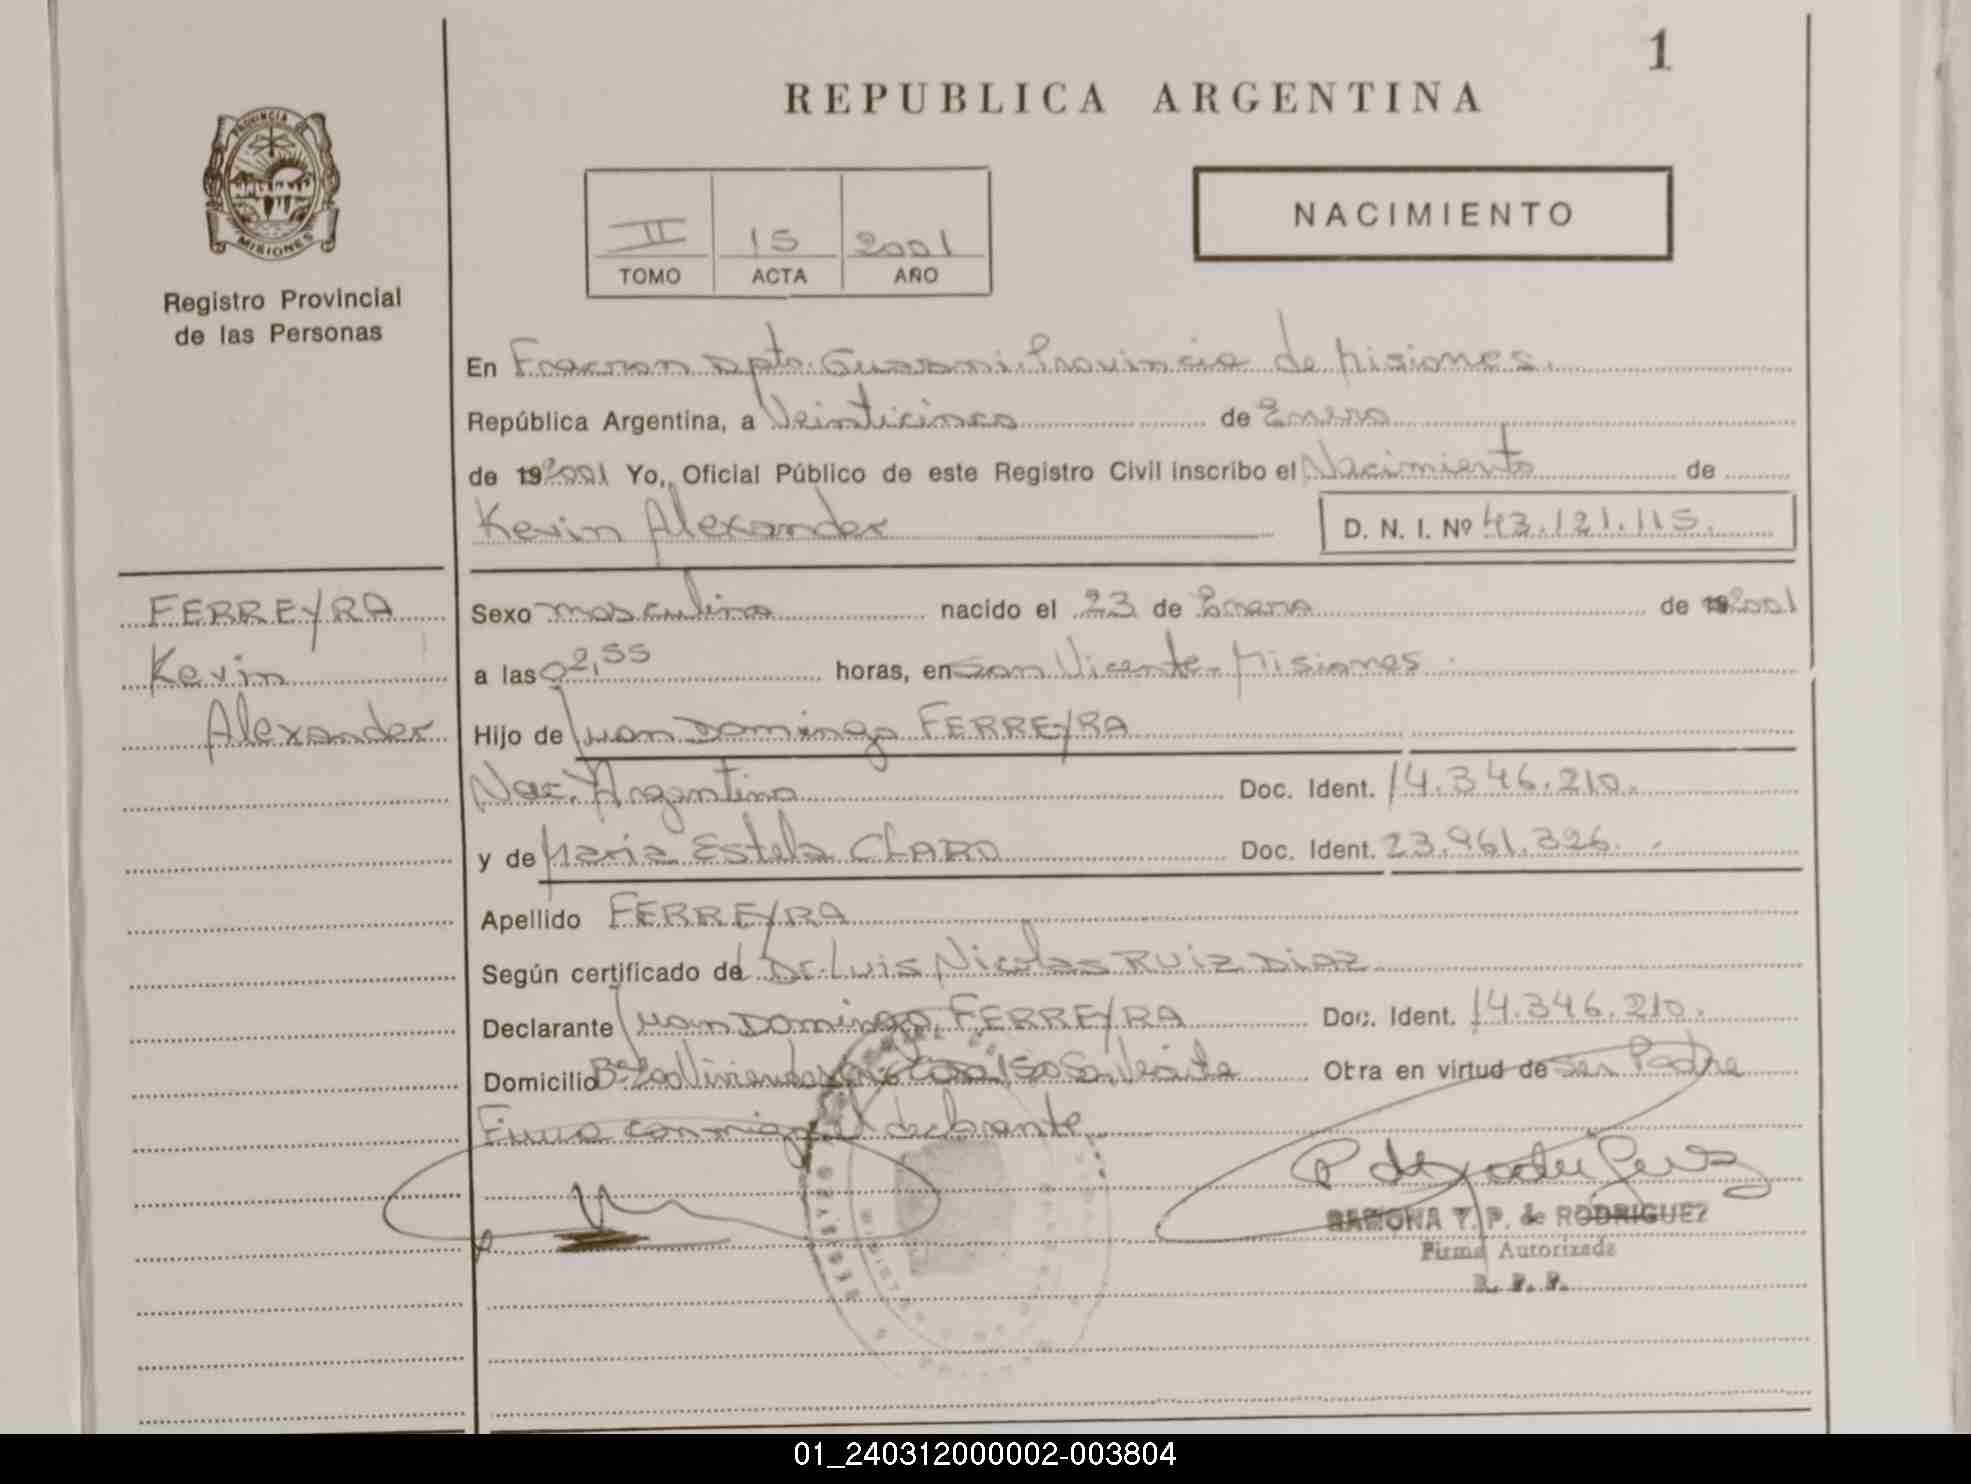 1
REPUBLICA ARGENTINA
PROVINCIA DE
MISIONES
Registro Provincial
de las Personas
II 15 2001
TOMO ACTA AÑO
NACIMIENTO
En Fracran Dpto. Guarani. Provincia de Misiones.
República Argentina, a Veinticinco de Enero
de 192001 Yo, Oficial Público de este Registro Civil inscribo el Nacimiento de
Kevin Alexander D. N. I. Nº 43.121.115.
FERREYRA
Kevin
Alexander
Sexo masculino nacido el 23 de Enero de 192001
a las 02,55 horas, en San Vicente - Misiones.
Hijo de Juan Domingo FERREYRA
Nac. Argentina Doc. Ident. 14.346.210.
y de Maria Estela CLARO Doc. Ident. 23.961.326.-
Apellido FERREYRA
Según certificado de Dr. Luis Nicolas RUIZ DIAZ
Declarante Juan Domingo FERREYRA Doc. Ident. 14.346.210.
Domicilio Bº 200 Viviendas Casa 150 Obra en virtud de ser Padre
Firma conmigo el declarante.
RAMONA T. P. de RODRIGUEZ
Firma Autorizada
R. P. P.
01_240312000002-003804